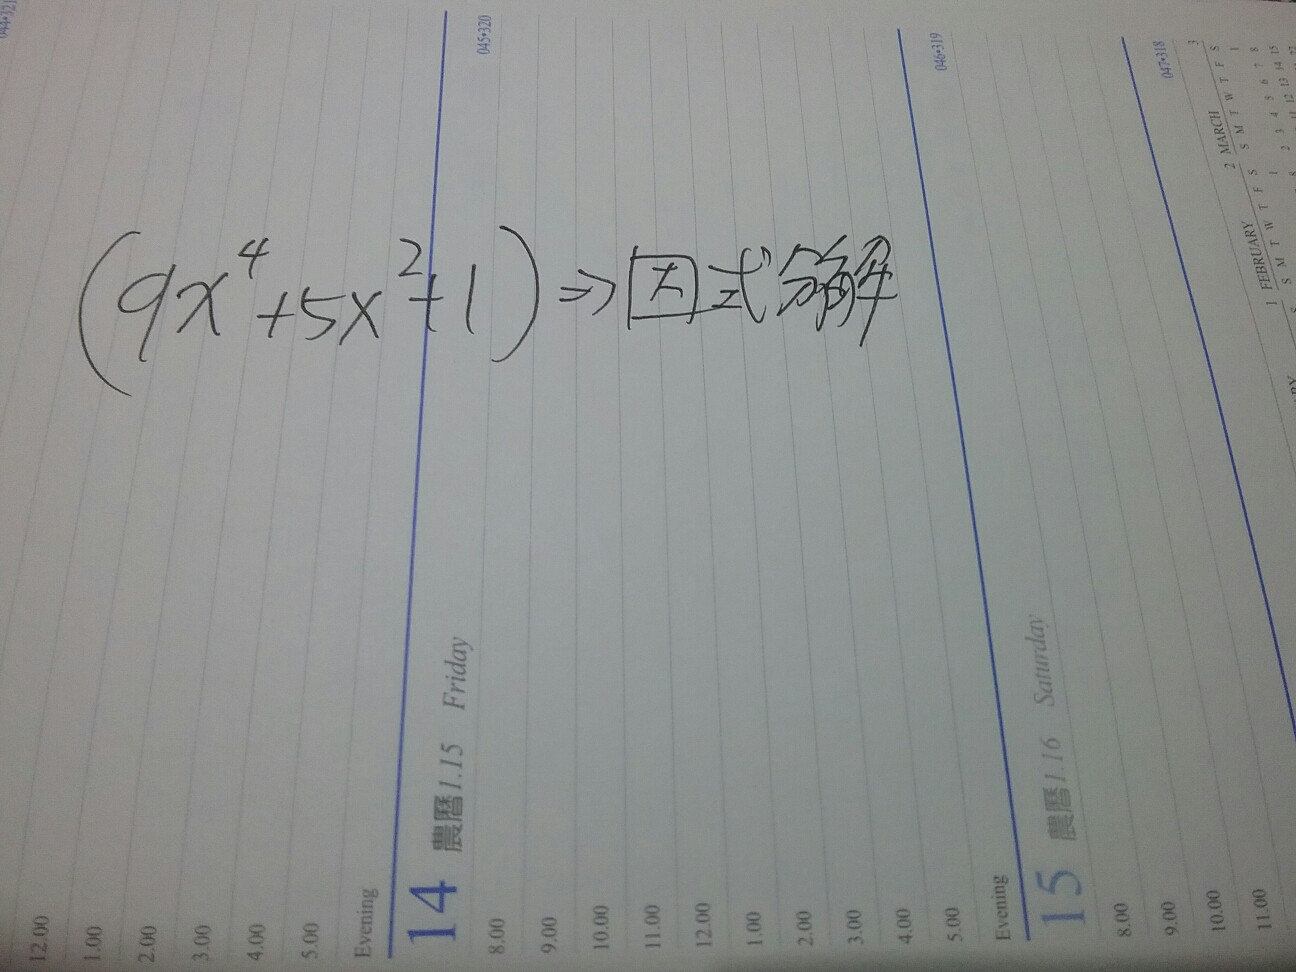 (9x⁴+5x²+1)⇒因式分解
044•321
12.00
1.00
2.00
3.00
4.00
5.00
Evening
14 農曆1.15 Friday
045•320
8.00
9.00
10.00
11.00
12.00
1.00
2.00
3.00
4.00
5.00
Evening
15 農曆1.16 Saturday
046•319
8.00
9.00
10.00
11.00
047•318
1 FEBRUARY
S M T W T F S
1
2 MARCH 3
S M T W T F S
1
2 3 4 5 6 7 8
11 12 13 14 15